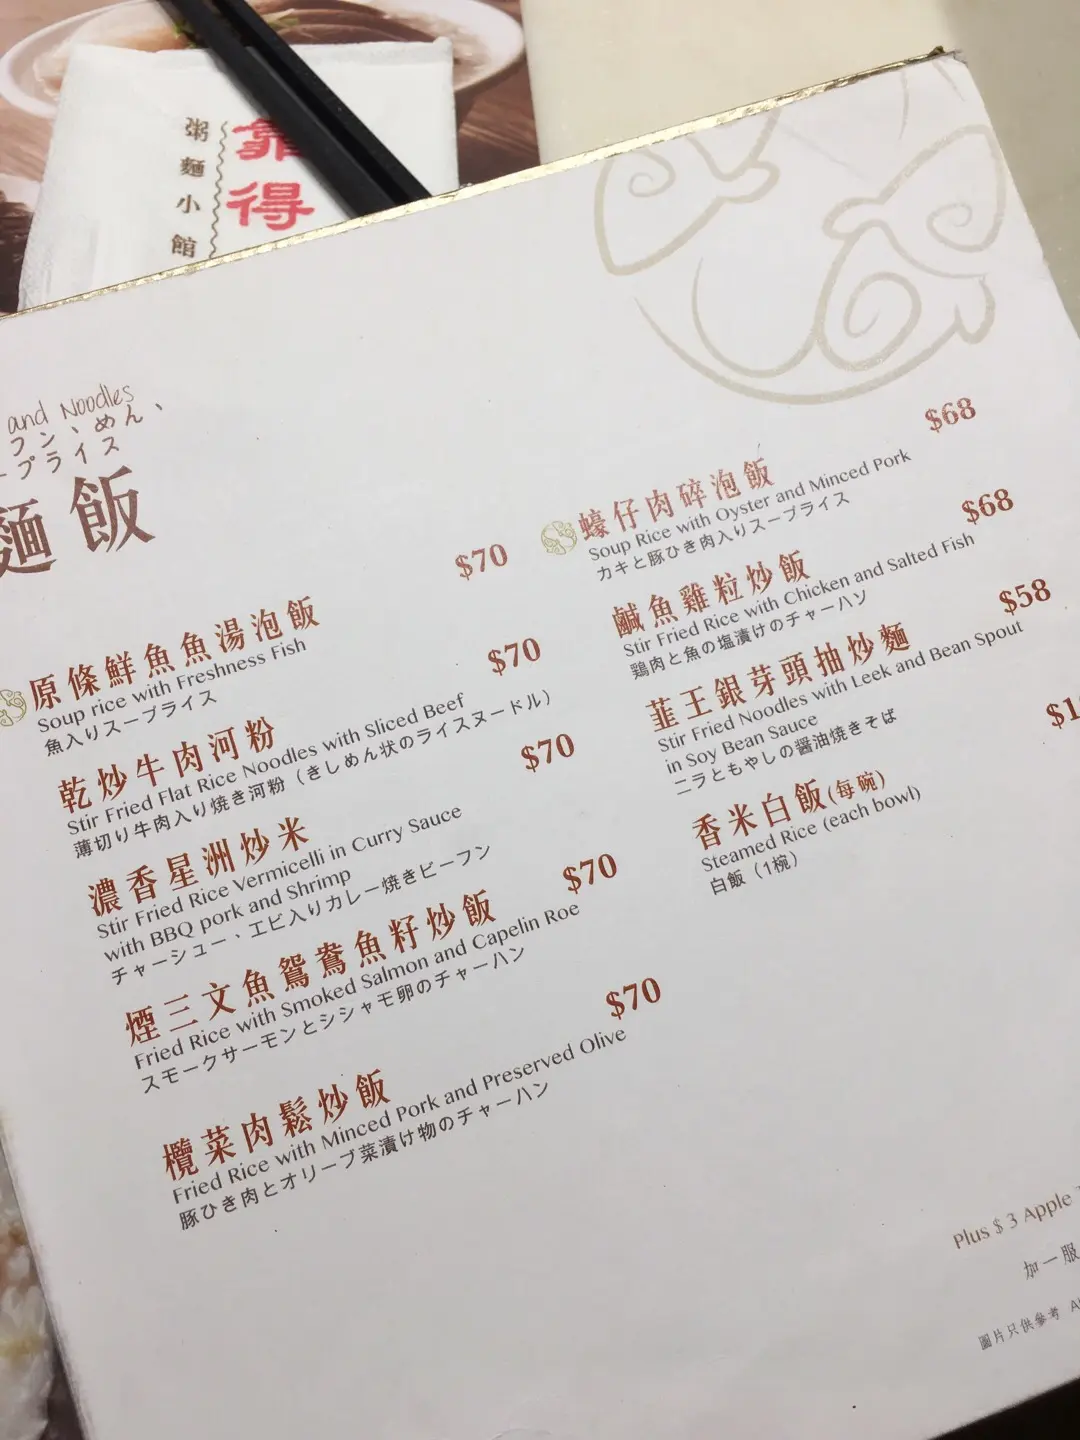 靠得
粥麵小館
and Noodles
フン、めん、
ープライス
麵飯
$70
原條鮮魚魚湯泡飯
Soup rice with Freshness Fish
魚入りスープライス
$70
乾炒牛肉河粉
Stir Fried Flat Rice Noodles with Sliced Beef
薄切り牛肉入り焼き河粉（きしめん状のライスヌードル）
$70
濃香星洲炒米
Stir Fried Rice Vermicelli in Curry Sauce
with BBQ pork and Shrimp
チャーシュー、エビ入りカレー焼きビーフン
$70
煙三文魚鴛鴦魚籽炒飯
Fried Rice with Smoked Salmon and Capelin Roe
スモークサーモンとシシャモ卵のチャーハン
$70
欖菜肉鬆炒飯
Fried Rice with Minced Pork and Preserved Olive
豚ひき肉とオリーブ菜漬け物のチャーハン
$68
蠔仔肉碎泡飯
Soup Rice with Oyster and Minced Pork
カキと豚ひき肉入りスープライス
$68
鹹魚雞粒炒飯
Stir Fried Rice with Chicken and Salted Fish
鶏肉と魚の塩漬けのチャーハン
$58
韮王銀芽頭抽炒麵
Stir Fried Noodles with Leek and Bean Spout
in Soy Bean Sauce
ニラともやしの醤油焼きそば
$1
香米白飯(每碗)
Steamed Rice (each bowl)
白飯（1椀）
Plus $ 3 Apple
加一服
圖片只供參考